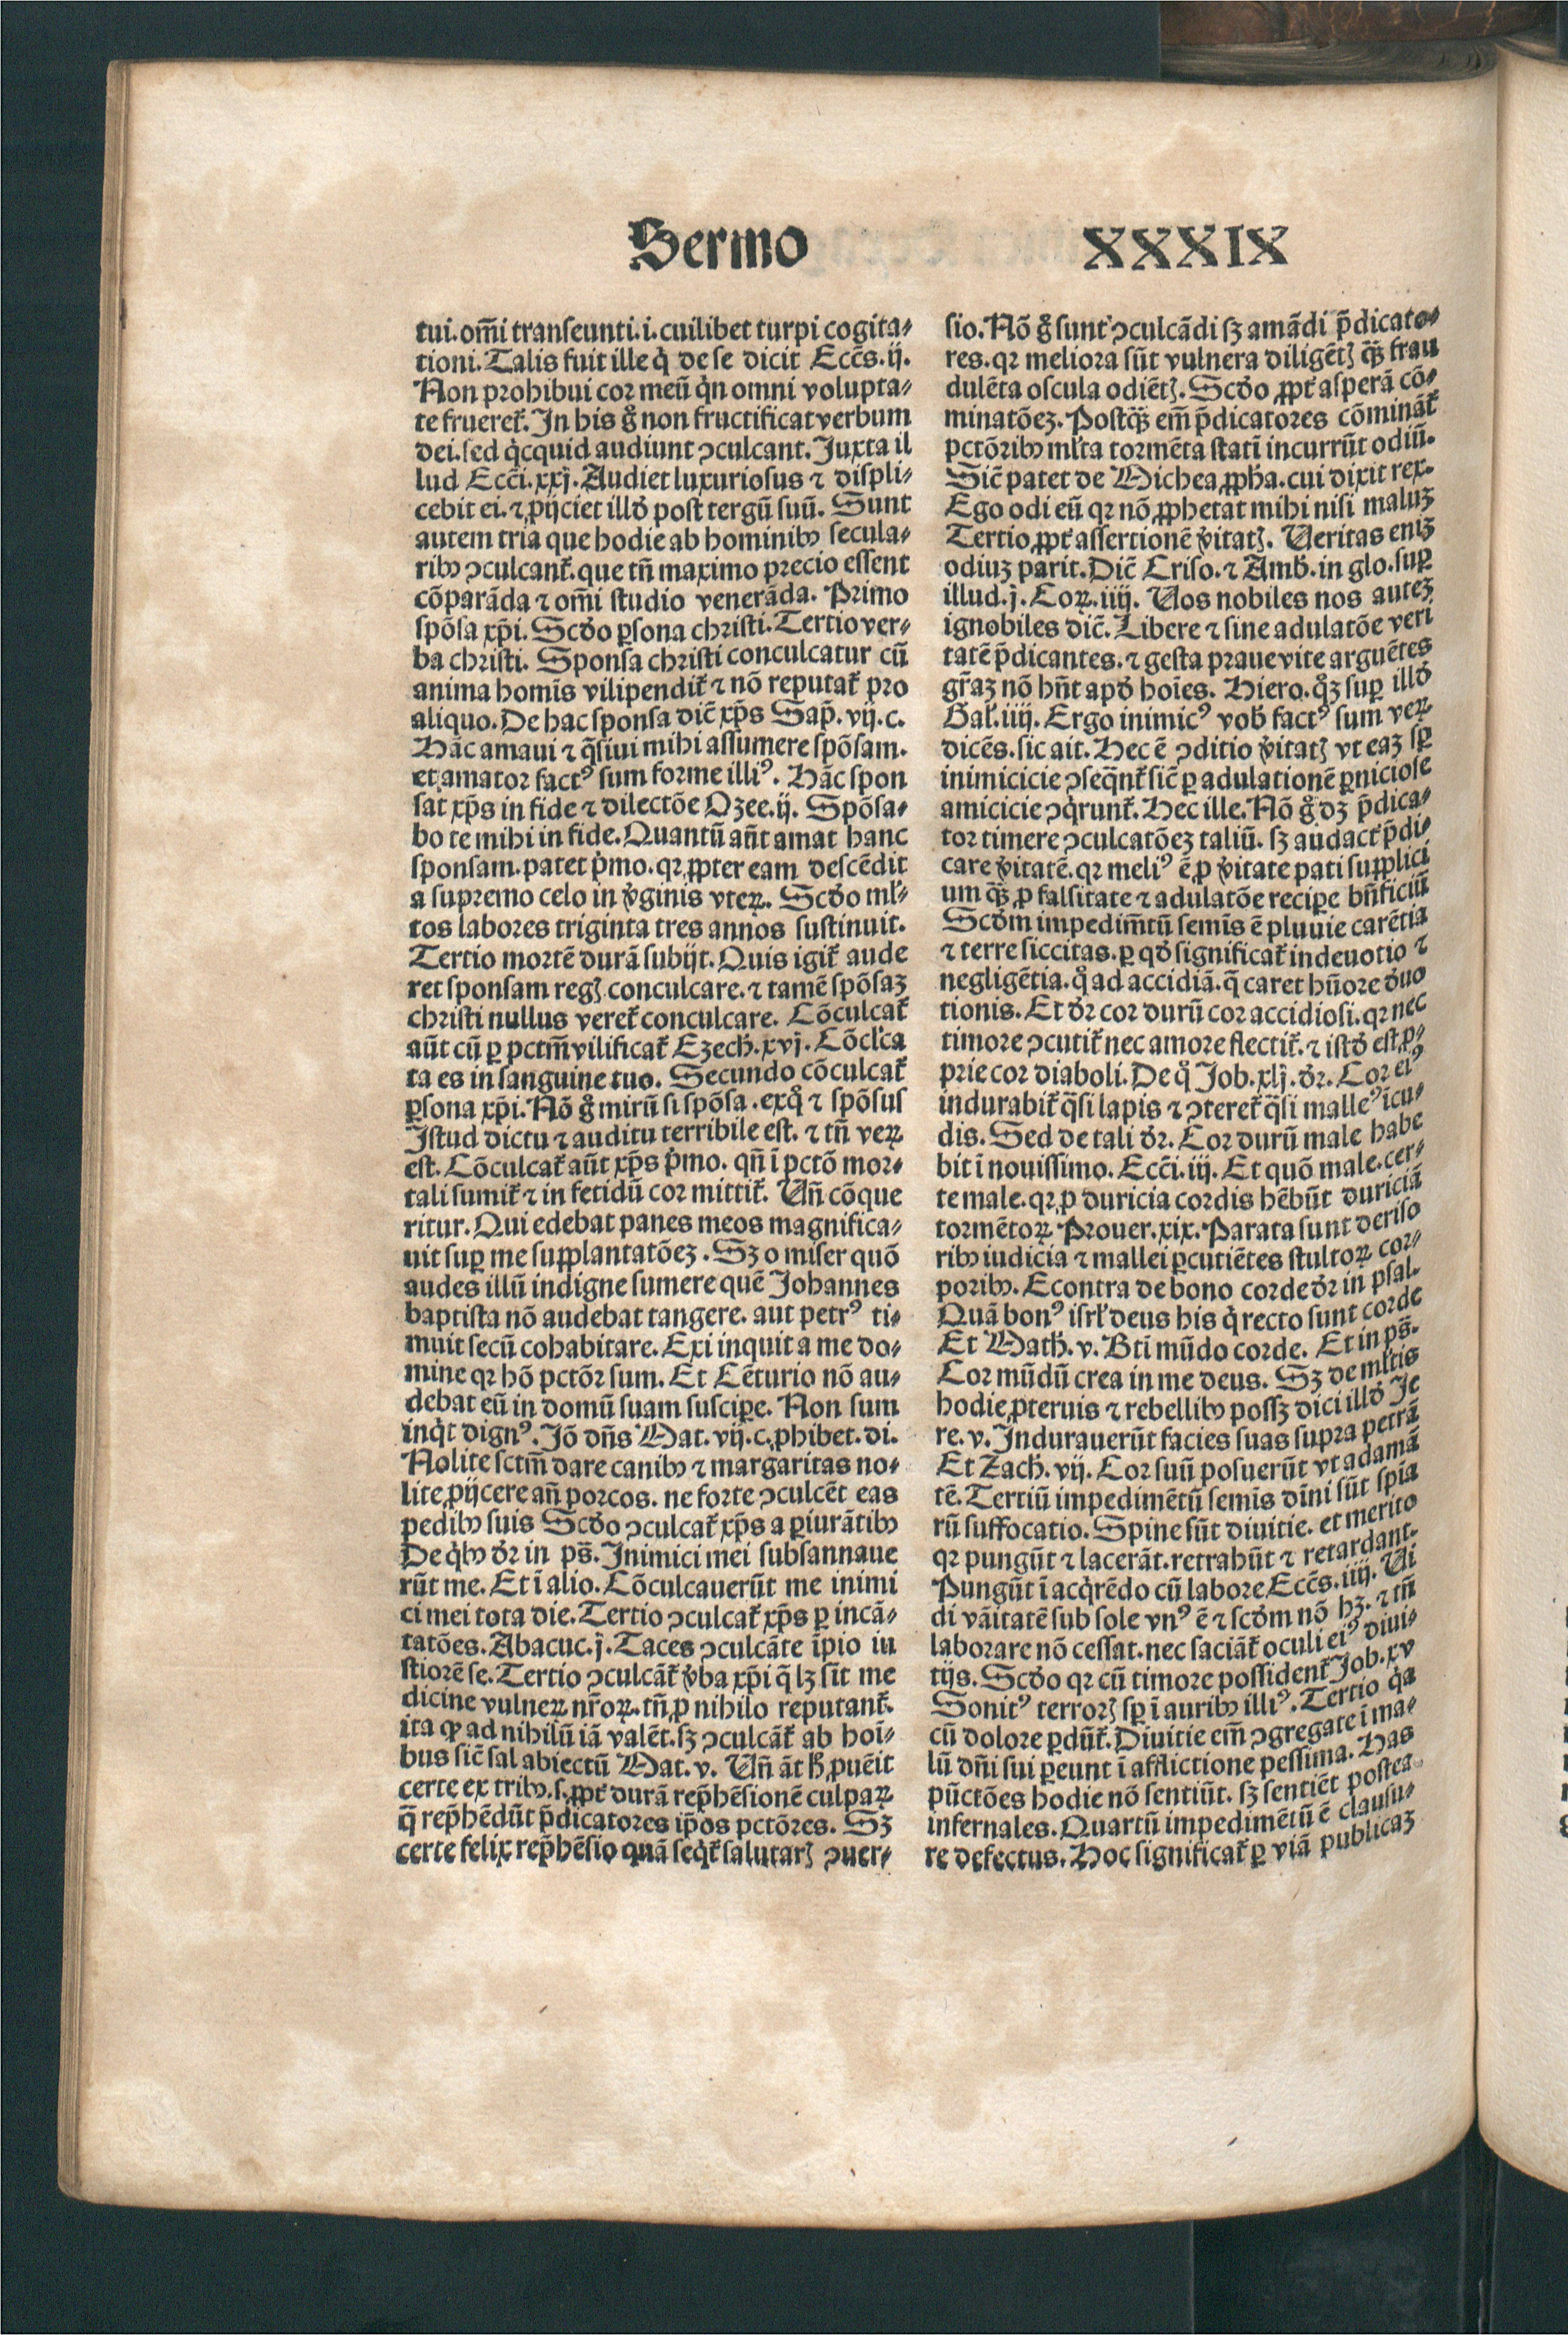 Sermo XXXIX
tui. om̄i transeunti. i. cuilibet turpi cogita⸗
tioni. Talis fuit ille q̇ de se dicit Ecc̄s. ij.
Non prohibui cor meū q̇n omni volupta⸗
te frueret᷑. In his g̊ non fructificat verbum
dei. sed q̇cquid audiunt ꝯculcant. Juxta il
lud Ecc̄i. xxj. Audiet luxuriosus ⁊ displi⸗
cebit ei. ⁊ ꝓijciet illđ post tergū suū. Sunt
autem tria que hodie ab hominibꝰ secula⸗
ribꝰ ꝯculcant᷑. que tn̄ maximo precio essent
cōparāda ⁊ om̄i studio venerāda. Primo
spōsa xp̄i. Scđo ꝑsona christi. Tertio ver⸗
ba christi. Sponsa christi conculcatur cū
anima homīs vilipendit᷑ ⁊ nō reputat᷑ pro
aliquo. De hac sponsa dic̄ xp̄s Sap̄. vij. c.
Hāc amaui ⁊ q̄siui mihi assumere spōsam.
et amator factꝰ sum forme illiꝰ. Hāc spon
sat xp̄s in fide ⁊ dilectōe Ozee. ij. Spōsa⸗
bo te mihi in fide. Quantū aūt amat hanc
sponsam. patet ṗmo. qꝛ ꝓpter eam descēdit
a supremo celo in v̇ginis vteꝝ. Scđo ml̓⸗
tos labores triginta tres annos sustinuit.
Tertio mortē durā subijt. Quis igit᷑ aude
ret sponsam regꝭ conculcare. ⁊ tamē spōsaꝫ
christi nullus veret᷑ conculcare. Cōculcat᷑
aūt cū ꝑ pctm̄ vilificat᷑ Ezech̄. xvj. Cōcl̓ca
ta es in sanguine tuo. Secundo cōculcat᷑
ꝑsona xp̄i. Nō g̊ mirū si spōsa. ex q̊ ⁊ spōsus
Istud dictu ⁊ auditu terribile est. ⁊ tn̄ veꝝ
est. Cōculcat᷑ aūt xp̄s ṗmo. qn̄ ī pctō mor⸗
tali sumit᷑ ⁊ in fetidū cor mittit᷑. Vn̄ cōque
ritur. Qui edebat panes meos magnifica⸗
uit suꝑ me supplantatōeꝫ. Sꝫ o miser quō
audes illū indigne sumere quē Johannes
baptista nō audebat tangere. aut petrꝰ ti⸗
muit secū cohabitare. Exi inquit a me do⸗
mine qꝛ hō pctōr sum. Et Cēturio nō au⸗
debat eū in domū suam susciꝑe. Non sum
inq̇t dignꝰ. Iō dn̄s Mat. vij. c. ꝓhibet. di.
Nolite sctm̄ dare canibꝰ ⁊ margaritas no⸗
lite ꝓijcere an̄ porcos. ne forte ꝯculcēt eas
pedibꝰ suis Scđo ꝯculcat᷑ xp̄s a ꝑiurātibꝰ
De q̇bꝰ dr̄ in ps̄. Inimici mei subsannaue
rūt me. Et ī alio. Cōculcauerūt me inimi
ci mei tota die. Tertio ꝯculcat᷑ xp̄s ꝑ incā⸗
tatōes. Abacuc. j. Taces ꝯculcāte īpio iu
stiorē se. Tertio ꝯculcāt᷑ v̇ba xp̄i q̄ lꝫ sit me
dicine vulneꝝ nr̄oꝝ. tn̄ ꝓ nihilo reputant᷑.
ita ꝙ ad nihilū iā valēt. sꝫ ꝯculcāt᷑ ab hoī⸗
bus sic̄ sal abiectū Mat. v. Vn̄ āt h̄ ꝓuēit
certe ex tribꝰ. s. ꝓpt᷑ durā rep̄hēsionē culpaꝝ
q̄ rep̄hēdūt p̄dicatores ip̄os pctōres. Sꝫ
certe felix rep̄hēsio quā seq̇t᷑ salutarꝭ ꝯuer⸗
sio. Nō g̊ sunt ꝯculcādi sꝫ amādi p̄dicato⸗
res. qꝛ meliora sūt vulnera diligētꝭ q̄ꝫ frau
dulēta oscula odiētꝭ. Scđo ꝓpt᷑ asperā cō⸗
minatōeꝫ. Postq̄ꝫ em̄ p̄dicatores cōmināt᷑
pctōribꝰ ml̓ta tormēta statī incurrūt odiū.
Sic̄ patet de Michea ꝓph̄a. cui dixit rex.
Ego odi eū qꝛ nō ꝓphetat mihi nisi maluꝫ
Tertio ꝓpt᷑ assertionē v̇itatꝭ. Veritas eniꝫ
odiuꝫ parit. Dic̄ Criso. ⁊ Amb̄. in glo. suꝑ
illud. j. Coꝝ. iiij. Vos nobiles nos auteꝫ
ignobiles dic̄. Libere ⁊ sine adulatōe veri
tatē p̄dicantes. ⁊ gesta praue vite arguētes
gr̄aꝫ nō hn̄t apđ hoīes. Hiero. q̊ꝫ suꝑ illđ
Gal̓. iiij. Ergo inimicꝰ vob̄ factꝰ sum veꝝ
dicēs. sic ait. Hec ē ꝯditio v̇itatꝭ vt eaꝫ sꝑ
inimicicie ꝯseq̄nt᷑ sic̄ ꝑ adulationē ꝑniciose
amicicie ꝯq̇runt᷑. Hec ille. Nō g̊ dꝫ p̄dica⸗
tor timere ꝯculcatōeꝫ taliū. sꝫ audact᷑ p̄di⸗
care v̇itatē. qꝛ meliꝰ ē ꝓ v̇itate pati supplici
um q̄ꝫ ꝓ falsitate ⁊ adulatōe recipe bn̄ficiū
Scđm impedim̄tū semīs ē pluuie carētia
⁊ terre siccitas. ꝑ qđ significat᷑ indeuotio ⁊
negligētia. q̊ ad accidiā. q̄ caret hūore đuo
tionis. Et dr̄ cor durū cor accidiosi. qꝛ nec
timore ꝯcutit᷑ nec amore flectit᷑. ⁊ istđ est ꝓ⸗
prie cor diaboli. De q̊ Job. xlj. dr̄. Cor eiꝰ
indurabit᷑ q̄si lapis ⁊ ꝯteret᷑ q̄si malleꝰ icu⸗
dis. Sed de tali dr̄. Cor durū male habe
bit ī nouissimo. Ecc̄i. iij. Et quō male. cer⸗
te male. qꝛ ꝓ duricia cordis hēbūt duriciā
tormētoꝝ Prouer. xix. Parata sunt deriso
ribꝰ iudicia ⁊ mallei ꝑcutiētes stultoꝝ cor⸗
poribꝰ. Econtra de bono corde dr̄ in psal.
Quā bonꝰ isrl̓ deus his q̇ recto sunt corde
Et Math̄. v. Btī mūdo corde. Et in ps̄.
Cor mūdū crea in me deus. Sꝫ de ml̓tis
hodie ꝓteruis ⁊ rebellibꝰ possꝫ dici illđ Je
re. v. Indurauerūt facies suas supra petrā
Et Zach̄. vij. Cor suū posuerūt vt adamā
tē. Tertiū impedimētū semīs dīni sūt spīa
rū suffocatio. Spine sūt diuitie. et merito
qꝛ pungūt ⁊ lacerāt. retrahūt ⁊ retardant.
Pungūt ī acq̇rēdo cū labore Ecc̄s. iiij. Vi
di vāitatē sub sole vnꝰ ē ⁊ scđm nō hꝫ. ⁊ tn̄
laborare nō cessat. nec saciāt᷑ oculi eiꝰ diui⸗
tijs. Scđo qꝛ cū timore possident᷑ Job. xv
Sonitꝰ terrorꝭ sꝑ ī auribꝰ illiꝰ. Tertio q̇a
cū dolore ꝑdūt᷑. Diuitie em̄ ꝯgregate ī ma⸗
lū dn̄i sui ꝑeunt ī afflictione pessima. Has
pūctōes hodie nō sentiūt. sꝫ sentiēt postea
infernales. Quartū impedimētū ē clausu⸗
re defectus. Hoc significat᷑ ꝑ viā publicaꝫ